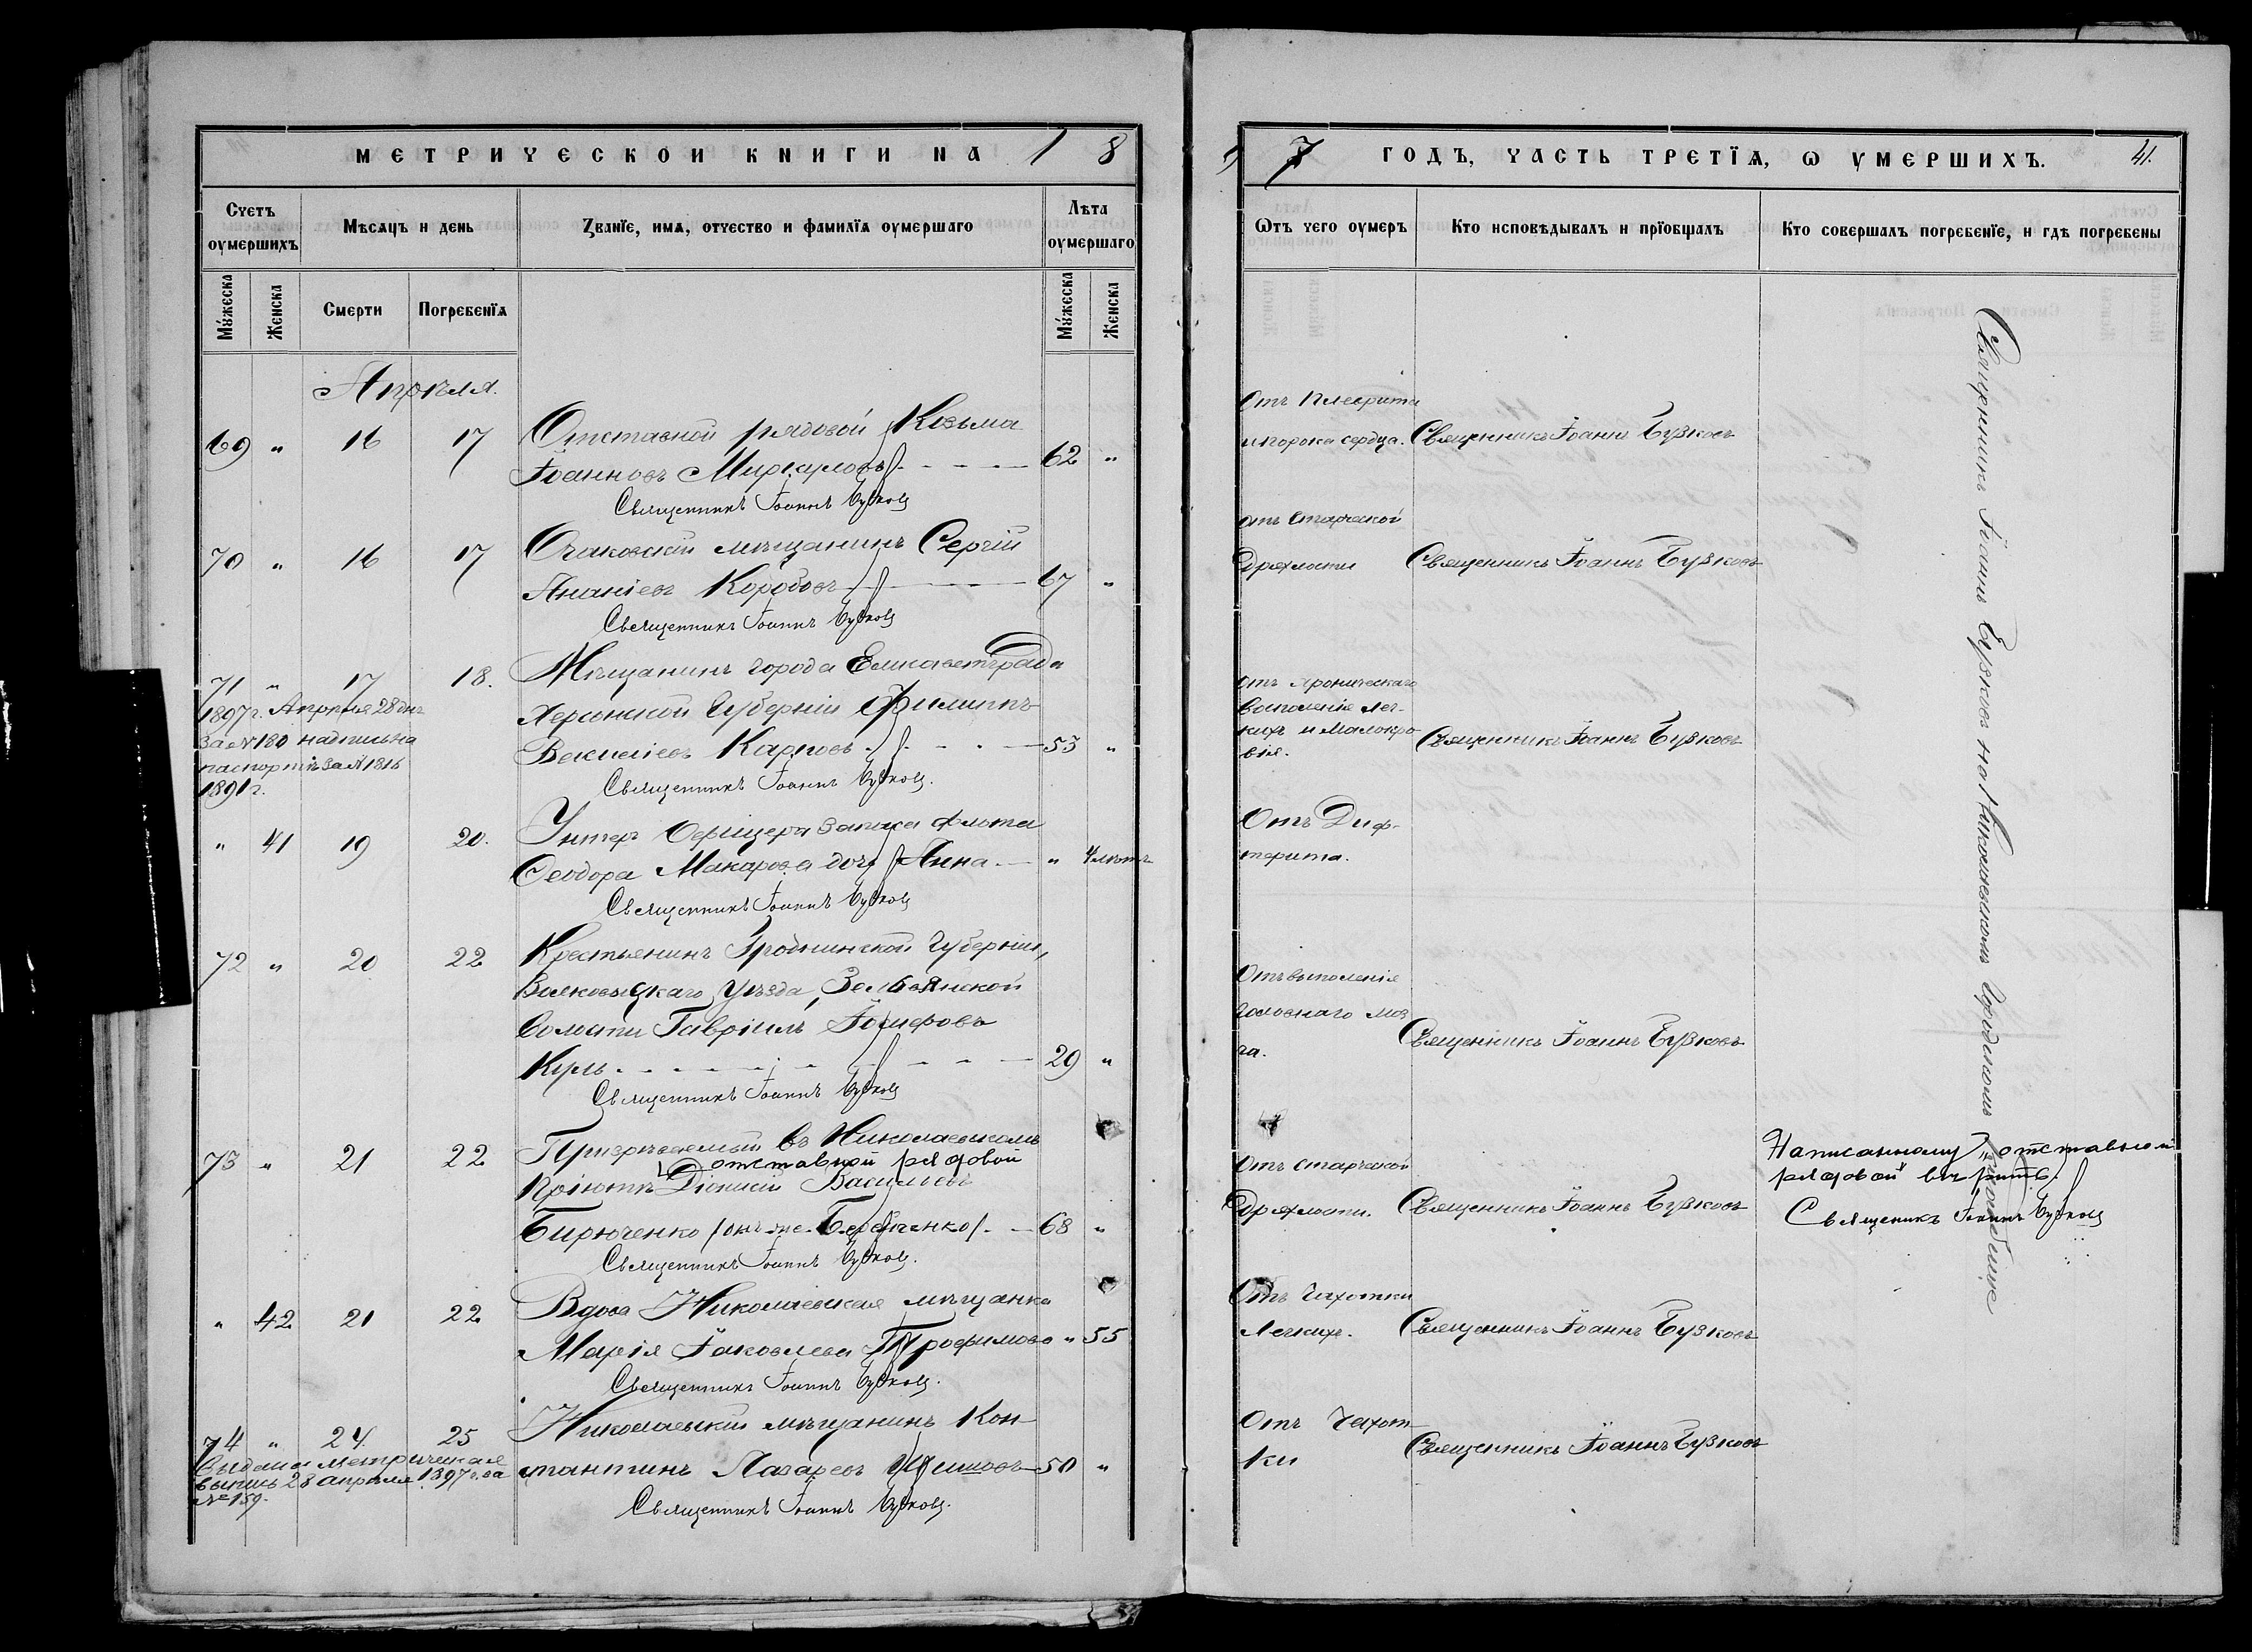 МЕТРИЧЕСКОЙ КНИГИ НА 18
97 ГОДЪ, ЧАСТЬ ТРЕТІѦ, Ѡ УМЕРШИХЪ. 41.
Счетъ оумершихъ
Мѣсяцъ и день
Званїе, имѧ, отчество и фамилїѧ оумершаго
Лѣта оумершаго
Ѡтъ чего оумеръ
Кто исповѣдывалъ и прїобщалъ
Кто совершалъ погребенїе, и гдѣ погребены
Мужеска Женска Смерти Погребенїѧ Мужеска Женска
Апрѣля.
69 " 16 17 Отставной рядовой Козьма
Іоанновъ 62 "
Священникъ Іоаннъ Бузковъ
Отъ плеврита
и порока сердца. Священникъ Іоаннъ Бузковъ
70 " 16 17 Очаковскій мѣщанинъ Сергій
Ананіевъ Коробовъ 67 "
Священникъ Іоаннъ Бузковъ
отъ старческой
дряхлости Священникъ Іоаннъ Бузковъ
71 " 17 18. Мѣщанинъ города Елисаветграда
Херсонской Губерніи Филиппъ
Василіевъ Карповъ 53 "
Священникъ Іоаннъ Бузковъ.
1897 г. Апрѣля 28 дня
за № 180 надпись на
паспортѣ за № 1816
1891 г.
отъ хроническаго
воспаленія лег-
кихъ и малокро-
вія. Священникъ Іоаннъ Бузковъ
" 41 19 20. Унтеръ Офицера запаса флота
Ѳеодора Макарова дочь Анна " 4 лѣтъ
Священникъ Іоаннъ Бузковъ
Отъ Диф-
терита.
72 " 20 22 Крестьянинъ Гродненской Губерніи,
Волковыскаго уѣзда, Зельвянской
волости Гавріилъ Іосифовъ
29 "
Священникъ Іоаннъ Бузковъ
Отъ воспаленія
головнаго моз
га. Священникъ Іоаннъ Бузковъ
73 " 21 22 Призрѣваемый въ Николаевскомъ
отставной рядовой
Пріютѣ Діонисій Васильевъ
Бирюченко /онъ-же 68 "
Священникъ Іоаннъ Бузковъ.
Отъ старческой
дряхлости. Священникъ Іоаннъ Бузковъ
Написанному "отставной
рядовой" вѣрить.
Священникъ Іоаннъ Бузковъ
" 42 21 22 Вдова Николаевская мѣщанка
Марія Іаковлева Трофимова " 55
Священникъ Іоаннъ Бузковъ.
Отъ Чахотки
Легкихъ. Священникъ Іоаннъ Бузковъ
74 " 24 25 Николаевскій мѣщанинъ Кон-
стантинъ Лазаревъ 50 "
Священникъ Іоаннъ Бузковъ.
Выдана метрическая
выпись 28 апрѣля 1897 г. за
№ 159.
Отъ Чахот-
ки Священникъ Іоаннъ Бузковъ
Священникъ Іоаннъ Бузковъ на Николаевскомъ городскомъ кладбищѣ